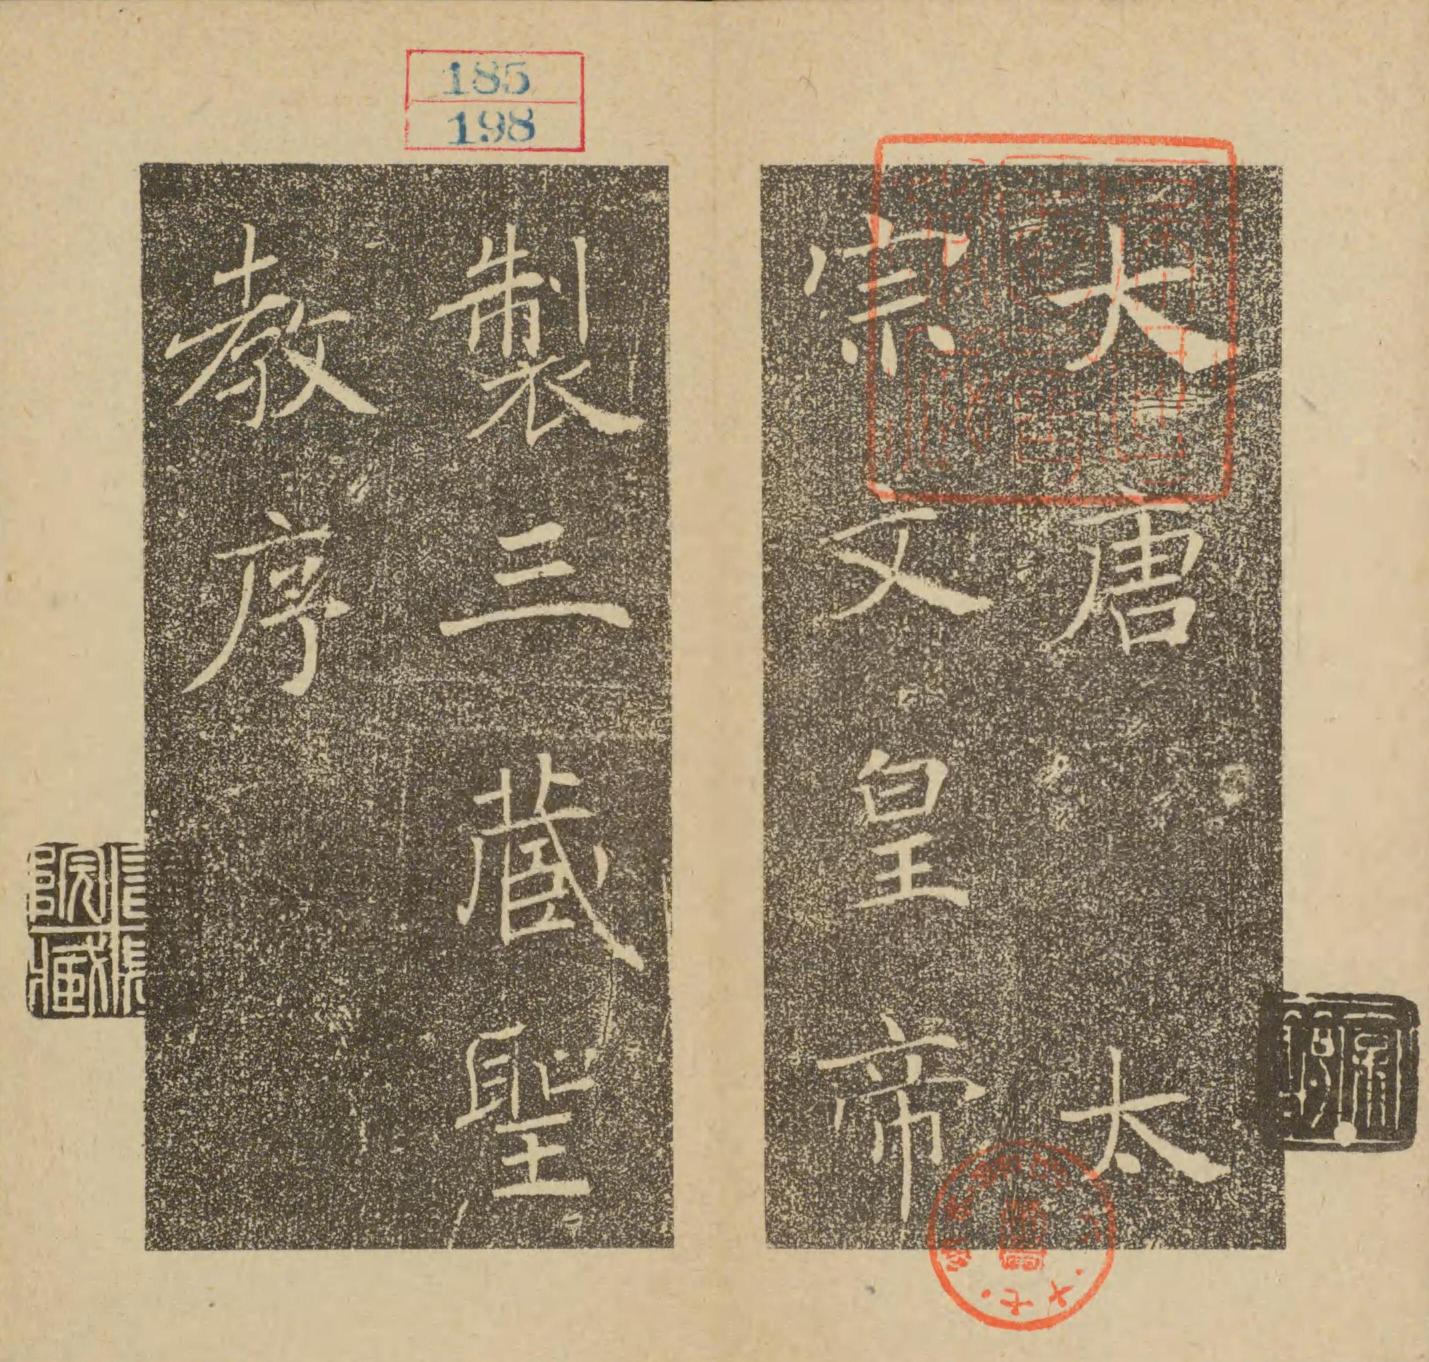 185
198
大唐太
宗文皇帝
製三藏聖
教序